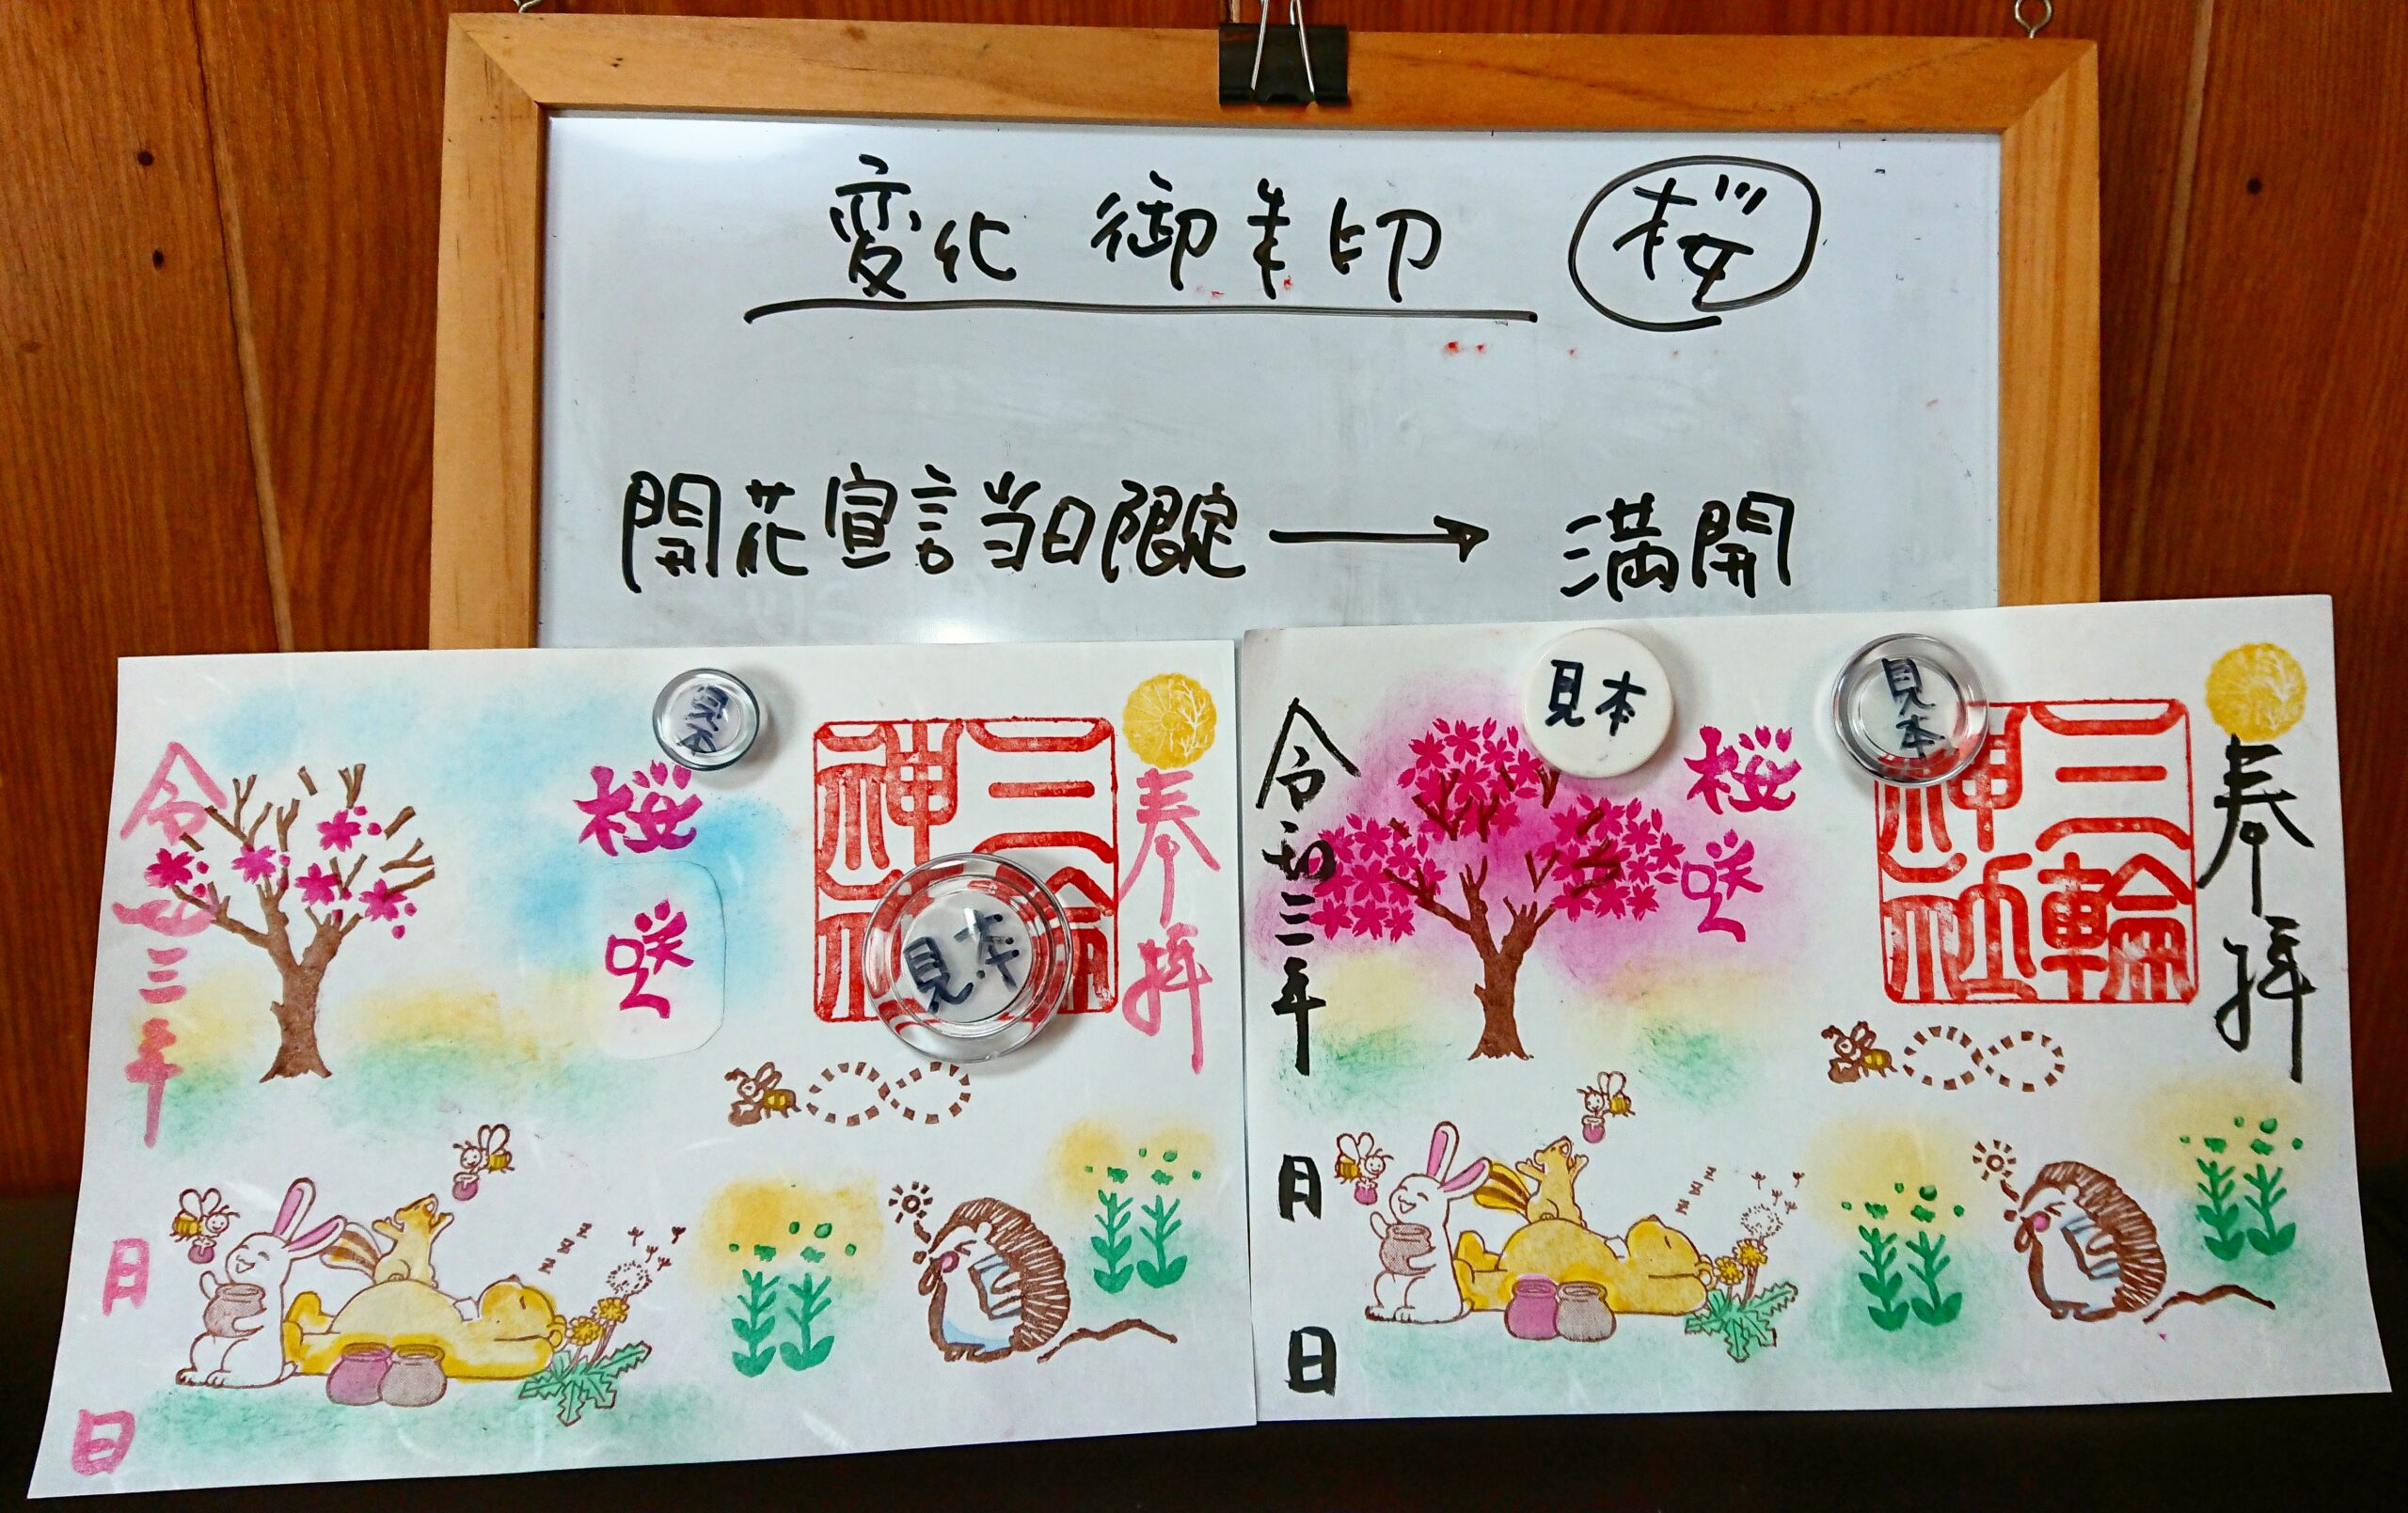 変化 御朱印 桜
開花宣言当日限定 → 満開
奉拝
三輪
神社
見本
見本
桜咲
令和三年 月 日
zzz
奉拝
三輪
神社
見本
見本
桜咲
令和三年 月 日
zzz